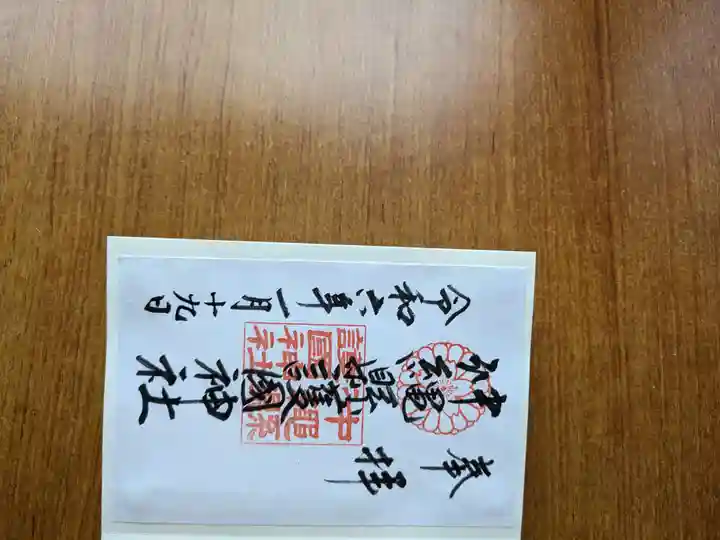 奉拝
沖縄縣護國神社
令和六年一月十九日